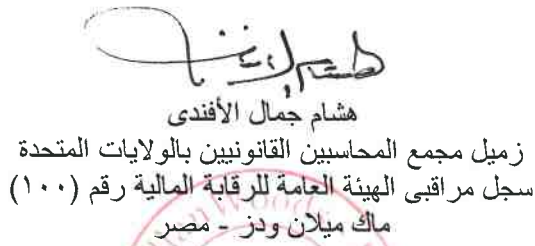 هشام جمال الأفندى
زميل مجمع المحاسبين القانونيين بالولايات المتحدة
سجل مراقبى الهيئة العامة للرقابة المالية رقم (١٠٠)
ماك ميلان ودز - مصر